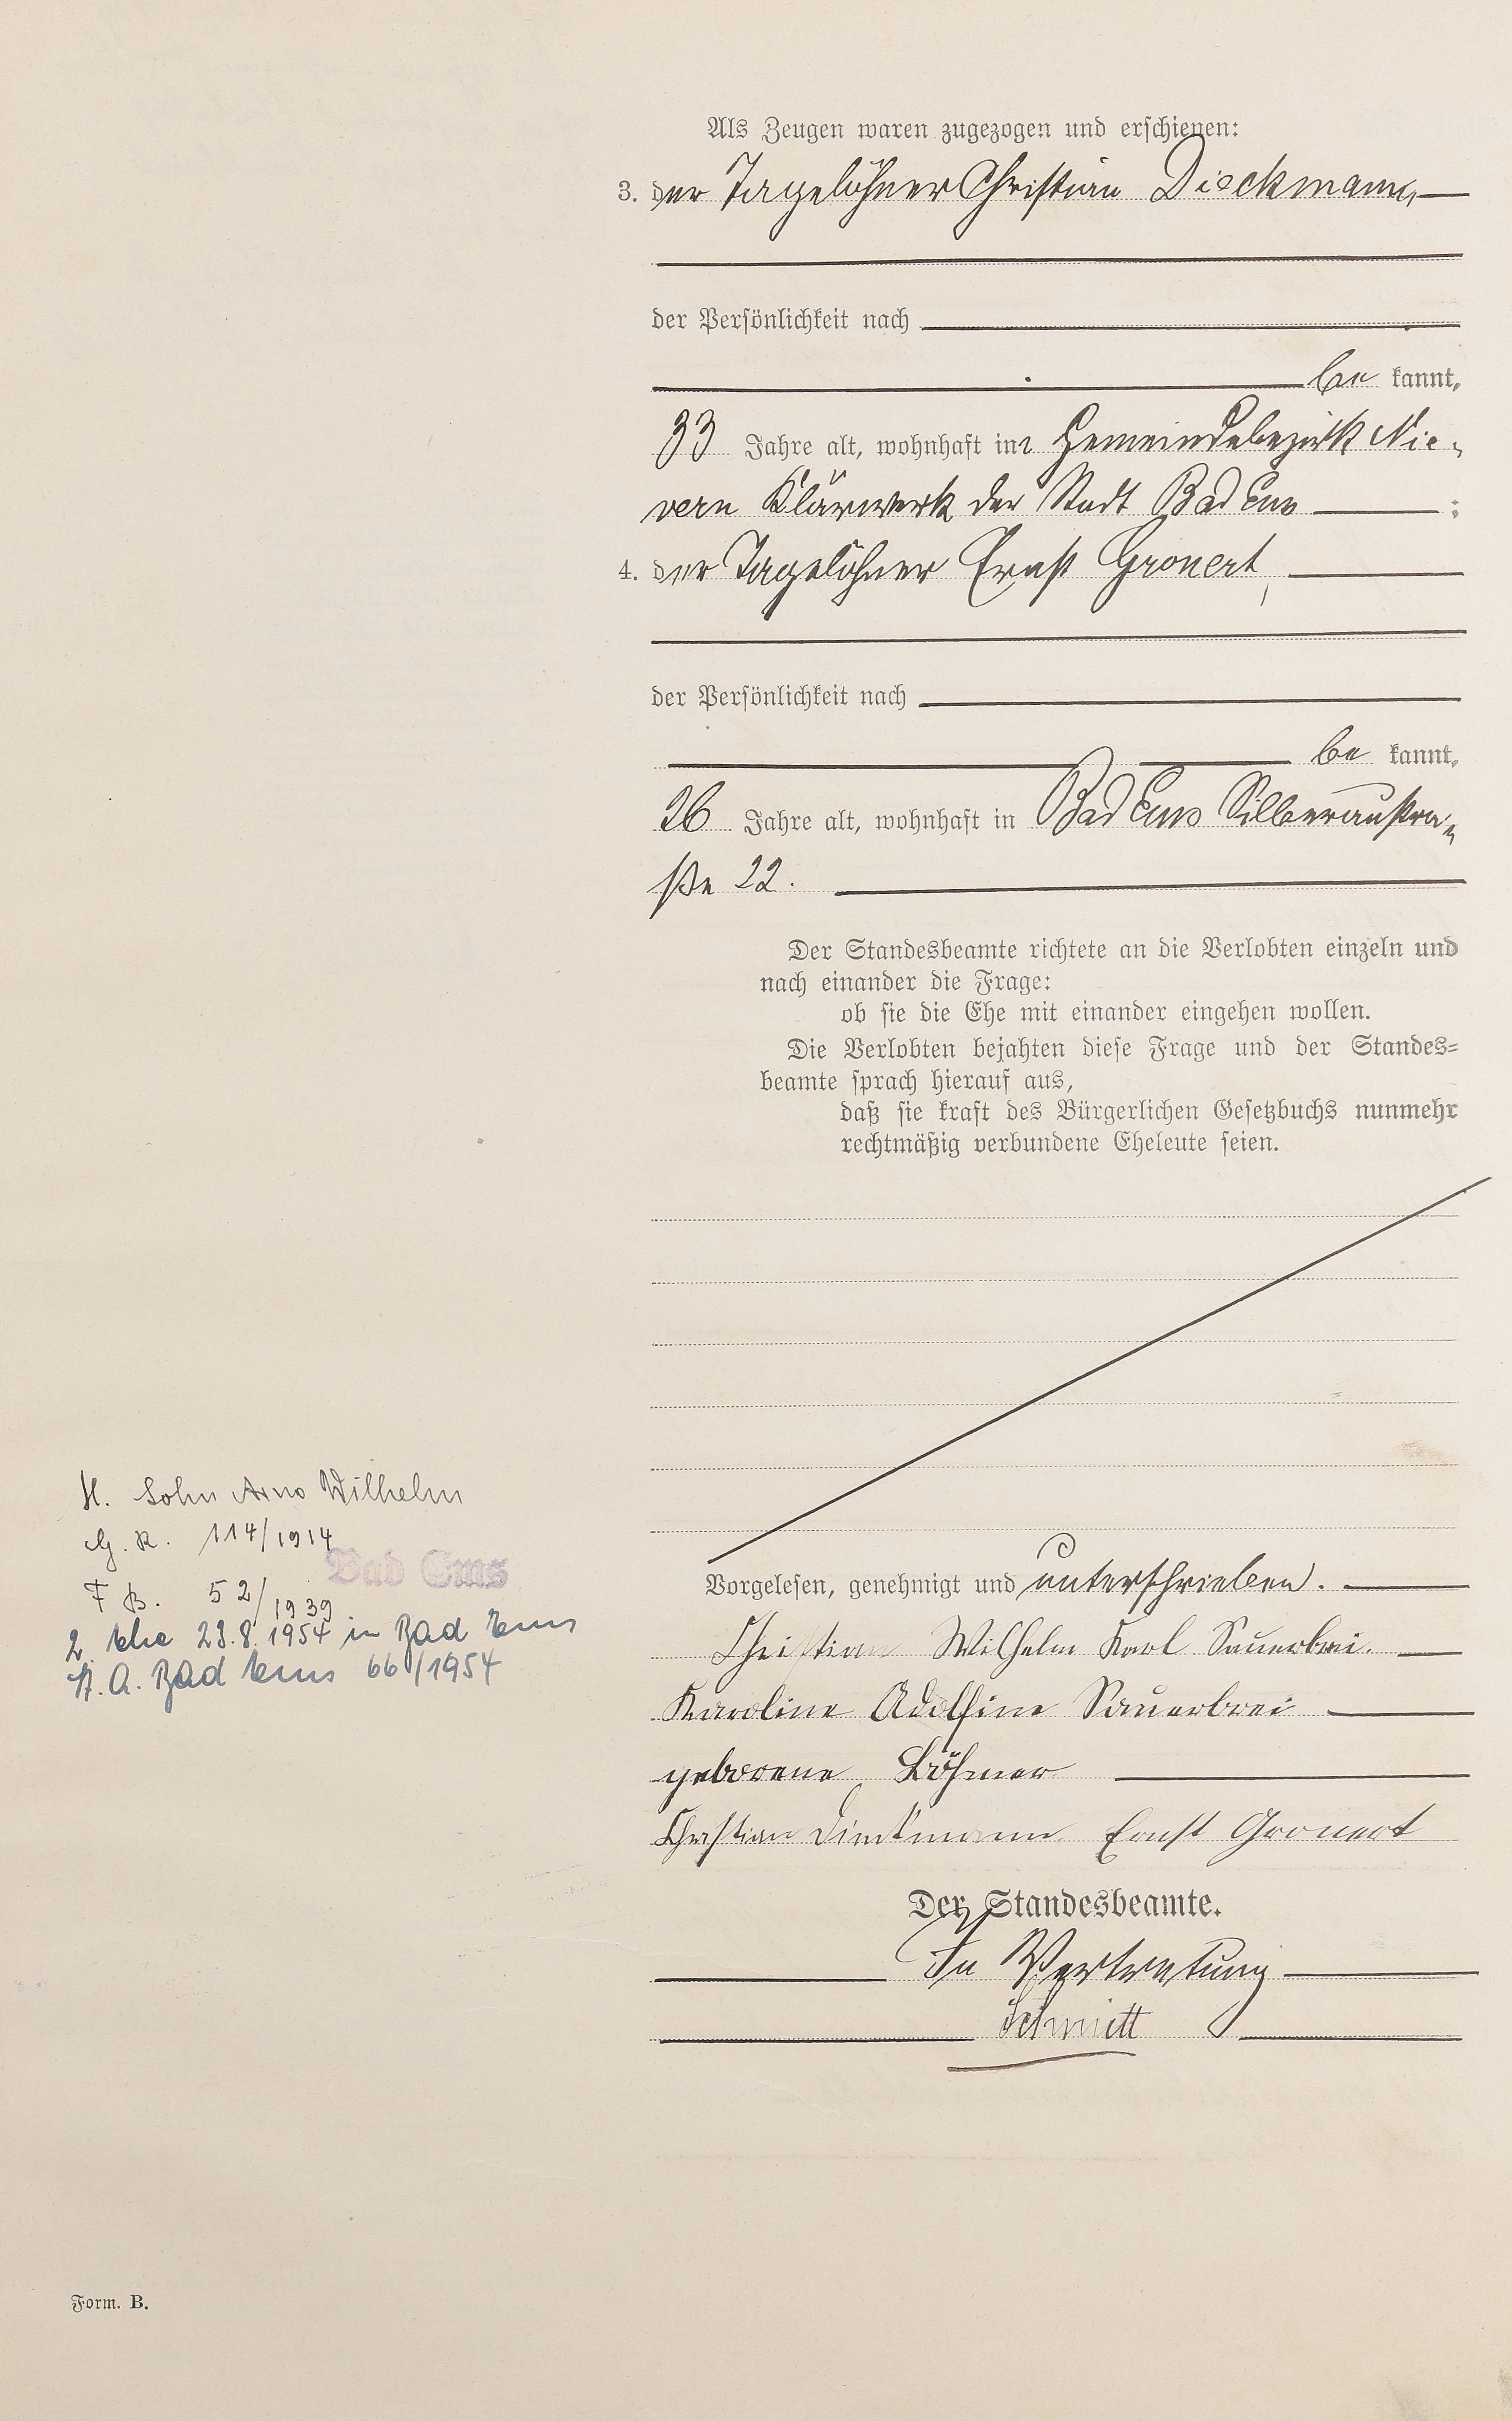 Als Zeugen waren zugezogen und erschienen:
3. der Tagelöhner Christian Dieckmann,
der Persönlichkeit nach
be kannt,
33 Jahre alt, wohnhaft im Gemeindebezirk Nie-
vern Klärwerk der Stadt Bad Ems ;
4. der Tagelöhner Ernst Gronert,
der Persönlichkeit nach
be kannt,
26 Jahre alt, wohnhaft in Bad Ems Silberaustra-
ße 22.
Der Standesbeamte richtete an die Verlobten einzeln und
nach einander die Frage:
ob sie die Ehe mit einander eingehen wollen.
Die Verlobten bejahten diese Frage und der Standes=
beamte sprach hierauf aus,
daß sie kraft des Bürgerlichen Gesetzbuchs nunmehr
rechtmäßig verbundene Eheleute seien.
Vorgelesen, genehmigt und unterschrieben.
Christian Wilhelm Karl Sauerbrei.
Karoline Adolfine Sauerbrei
geborene Böhmer
Christian Dieckmann Ernst Gronert
Der Standesbeamte.
In Vertretung
Schmitt
H. Sohn Arno Wilhelm
G. R. 114/1914
F B. 52/1939
Bad Ems
2. Ehe 23.8.1954 in Bad Ems
St. A. Bad Ems 66/1954
Form. B.